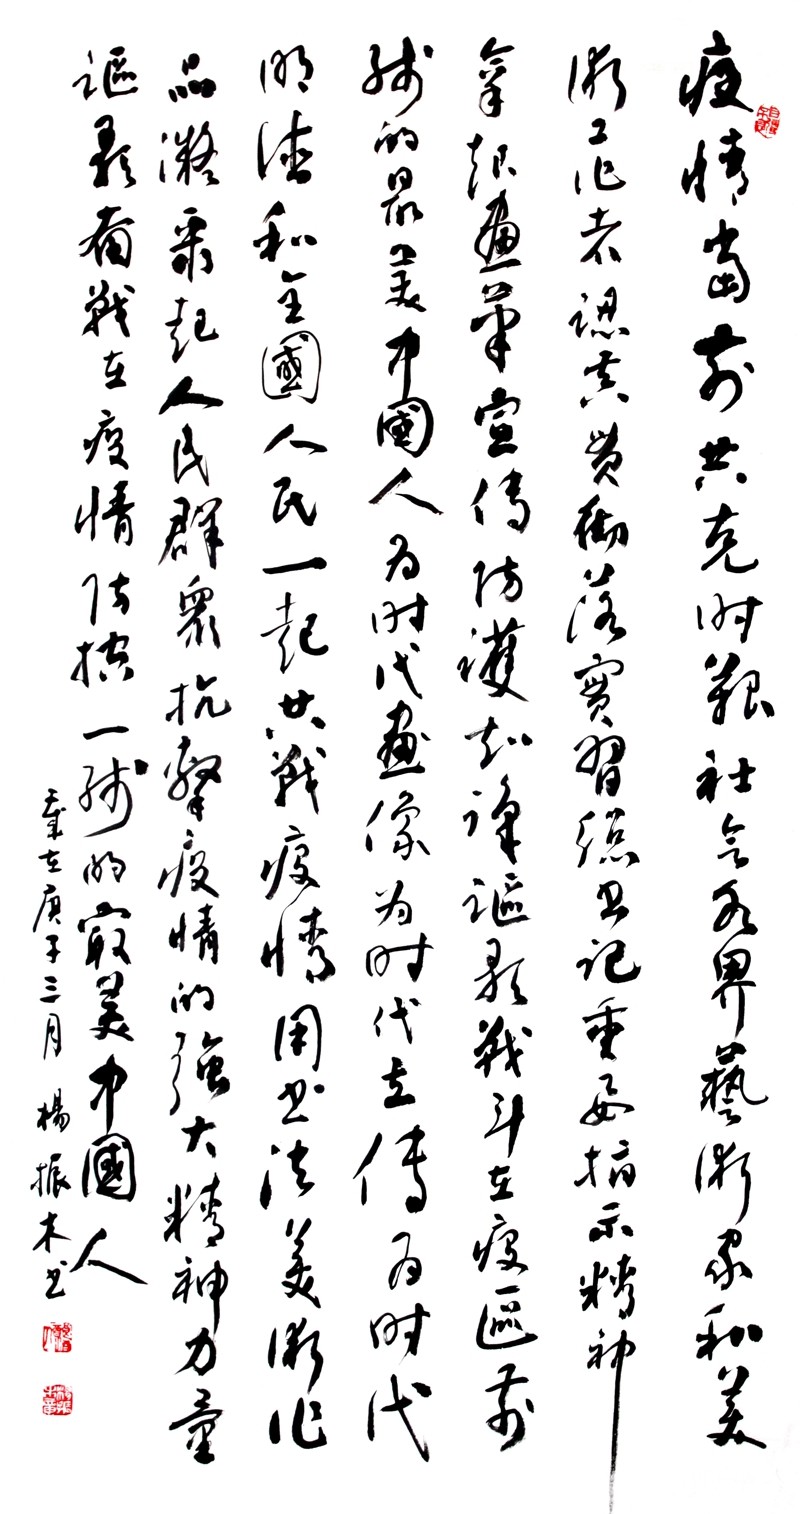 疫情當前共克时艱社会各界藝術家和美
術工作者認真貫徹落實習總书记重要指示精神
拿起畫筆宣傳防護知識謳歌戰斗在疫區前
线的最美中國人为时代畫像为时代立傳为时代
明德和全國人民一起共戰疫情用书法美術作
品凝聚起人民群眾抗擊疫情的強大精神力量
謳歌奋戰在疫情防控一线的最美中國人
歲在庚子三月楊振木书